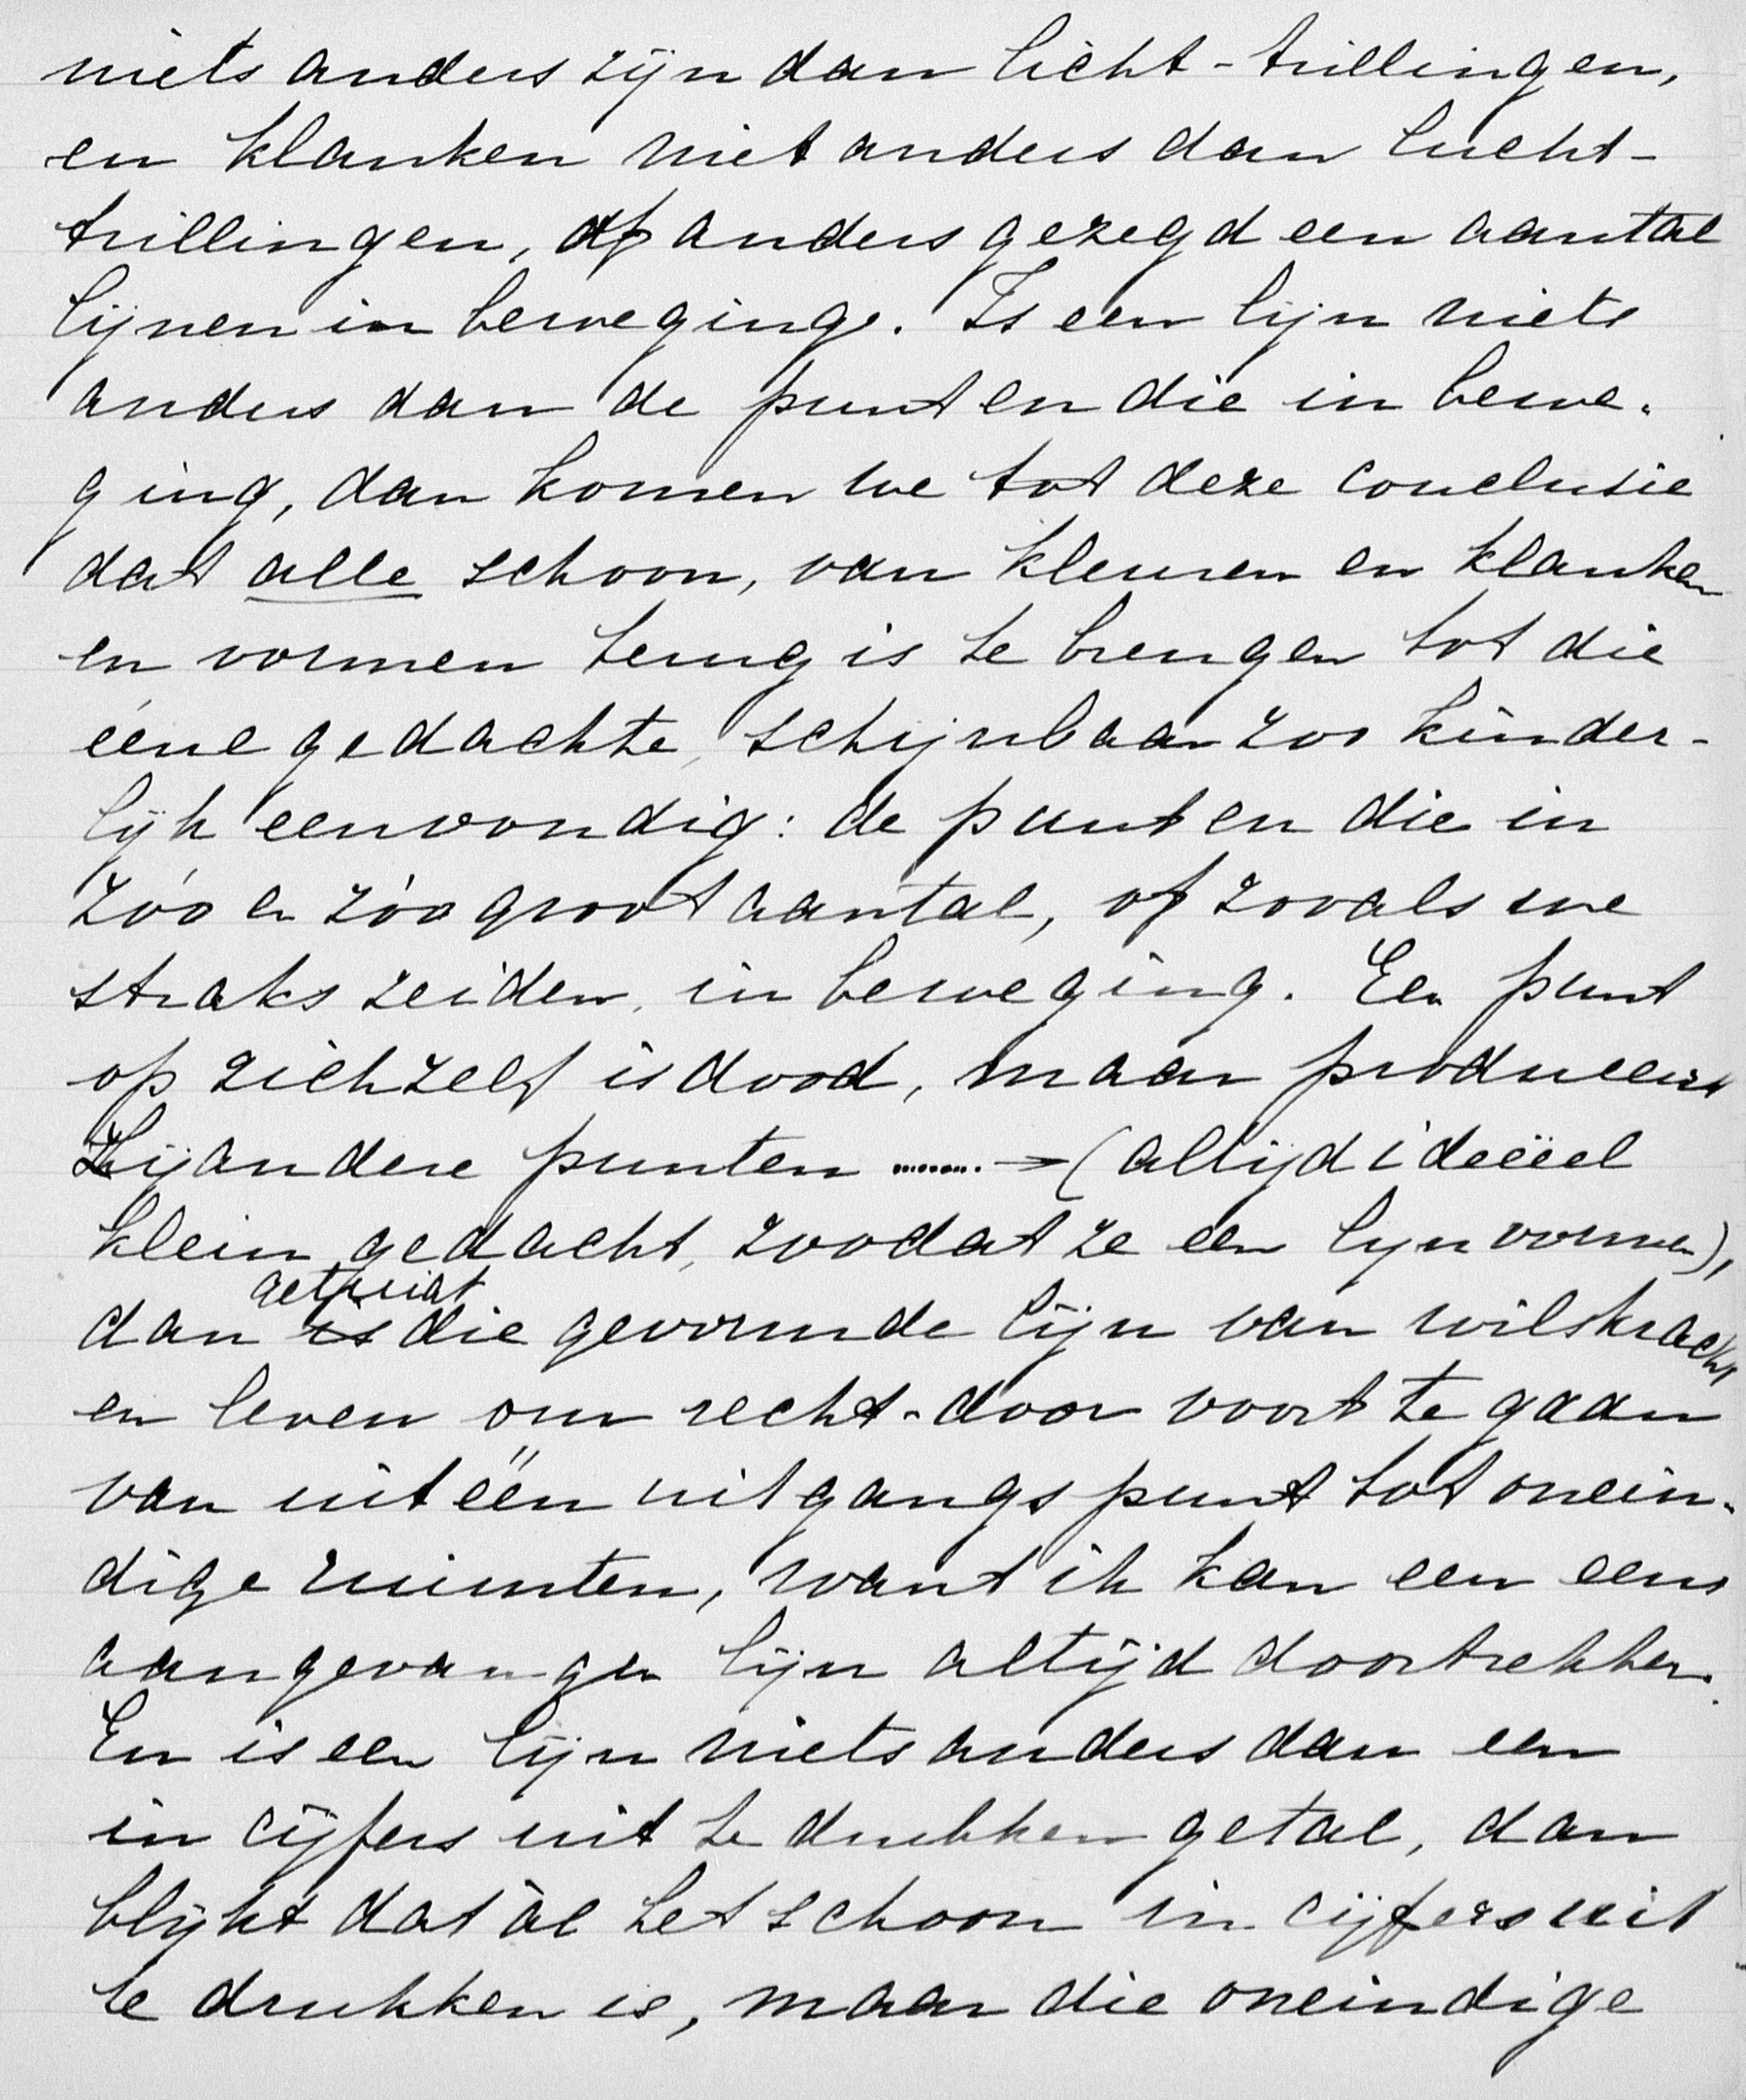 niets anders zijn dan licht-trillingen,
en klanken niet anders dan lucht-
trillingen, of anders gezegd een aantal
lijnen in beweginge. Is een lijn niets
anders dan de punt en die in bewe-
ging, dan komen we tot deze conclusie
dat alle schoon, van kleuren en klanken
en vormen terug is te brengen tot die
ééne gedachte, schijnbaar zoo kinder-
lijk eenvoudig: de punt en die in
zóo en zóo groot aantal, of zooals we
straks zeiden, in beweging. Een punt
op zichzelf is dood, maar produceert
zij andere punten ......... → (altijd ideëel
klein gedacht, zoodat ze een lijn vormen),
getuigt
dan is die gevormde lijn van wilskracht
en leven om recht-door voort te gaan
van uit één uitgangspunt tot onein-
dige ruimten, want ik kan een eens
aangevangen lijn altijd doortrekken.
En is een lijn niets anders dan een
in cijfers uit te drukken getal, dan
blijkt dat àl het schoon in cijfers uit
te drukken is, maar die oneindige